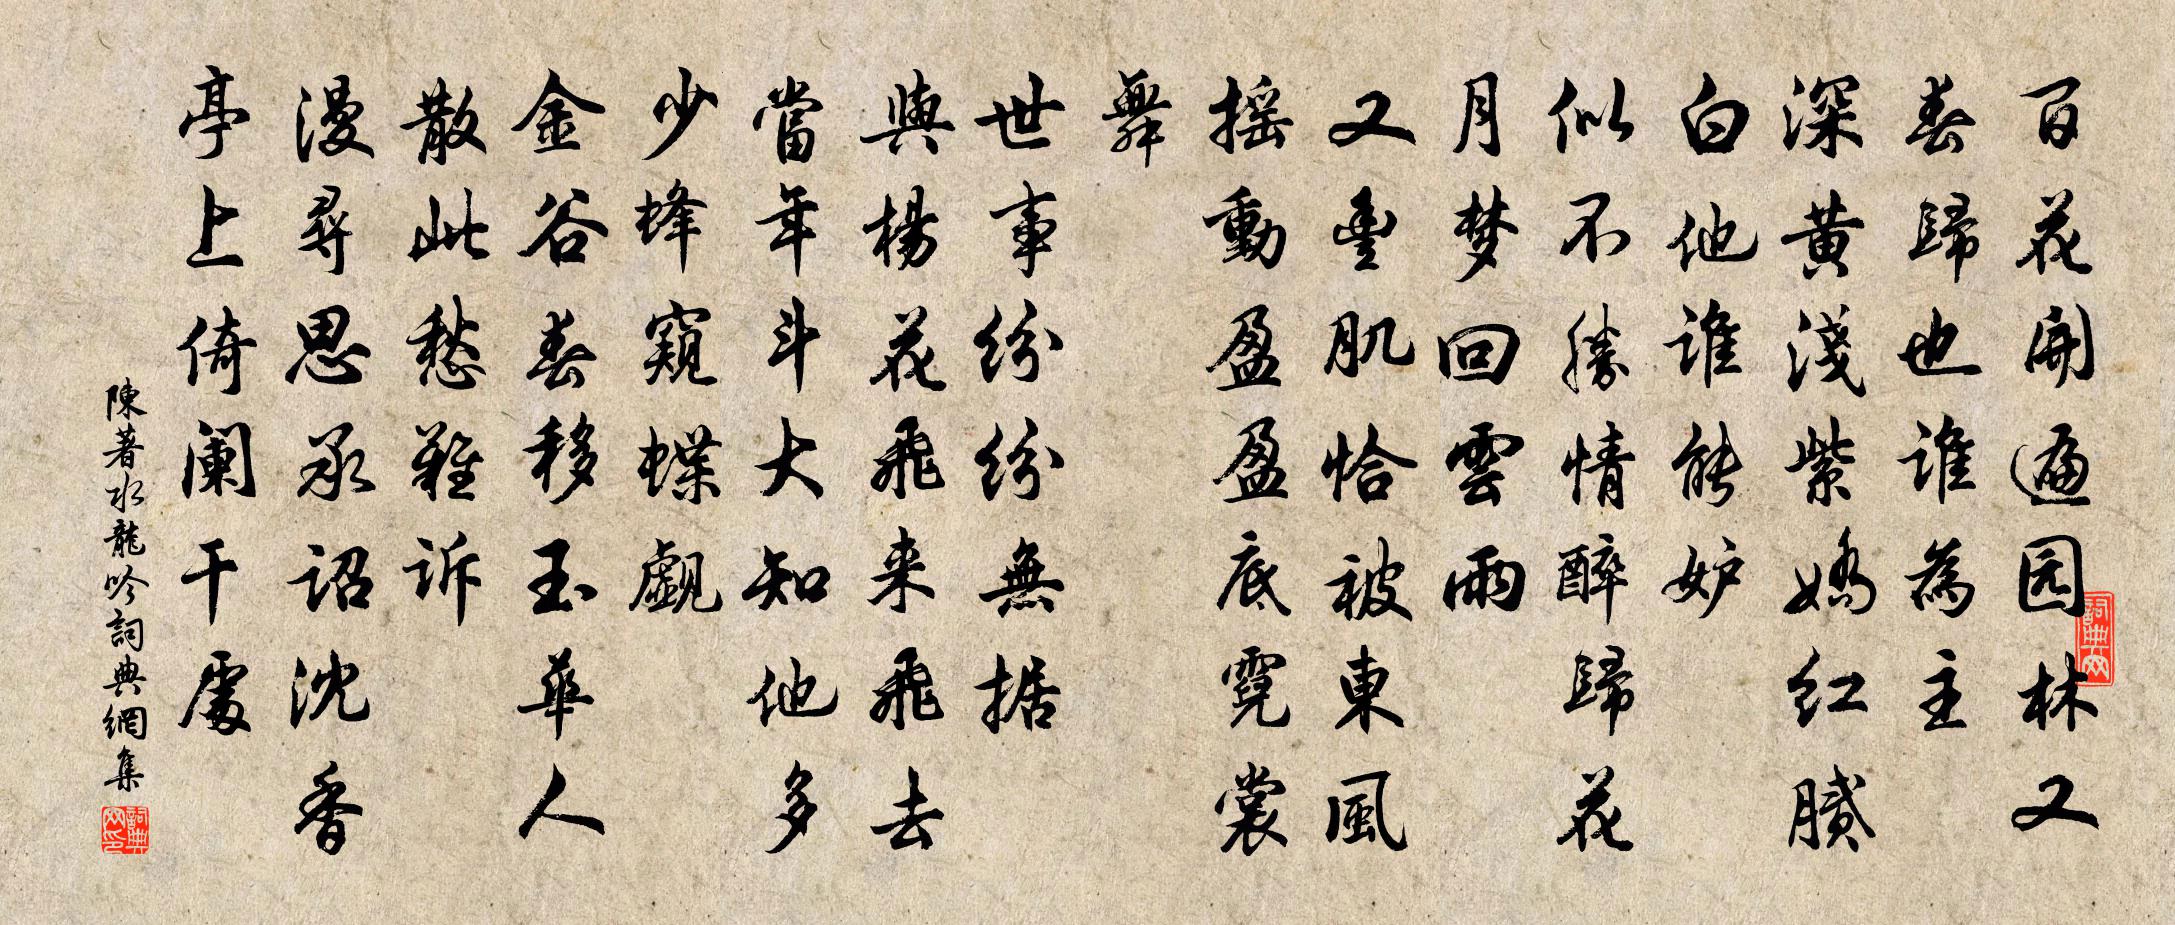 百花開遍园林又
春歸也誰為主
深黄淺紫嬌红膩
白他誰能妒
似不勝情醉歸花
月梦回雲雨
又豊肌恰被東風
摇動盈盈底霓裳
舞
世事纷纷無据
與楊花飛来飛去
當年斗大知他多
少蜂窺蝶覷
金谷春移玉華人
散此愁難訴
漫尋思承詔沈香
亭上倚阑干處
陳著水龍吟詞典網集
詞典网
詞典网印